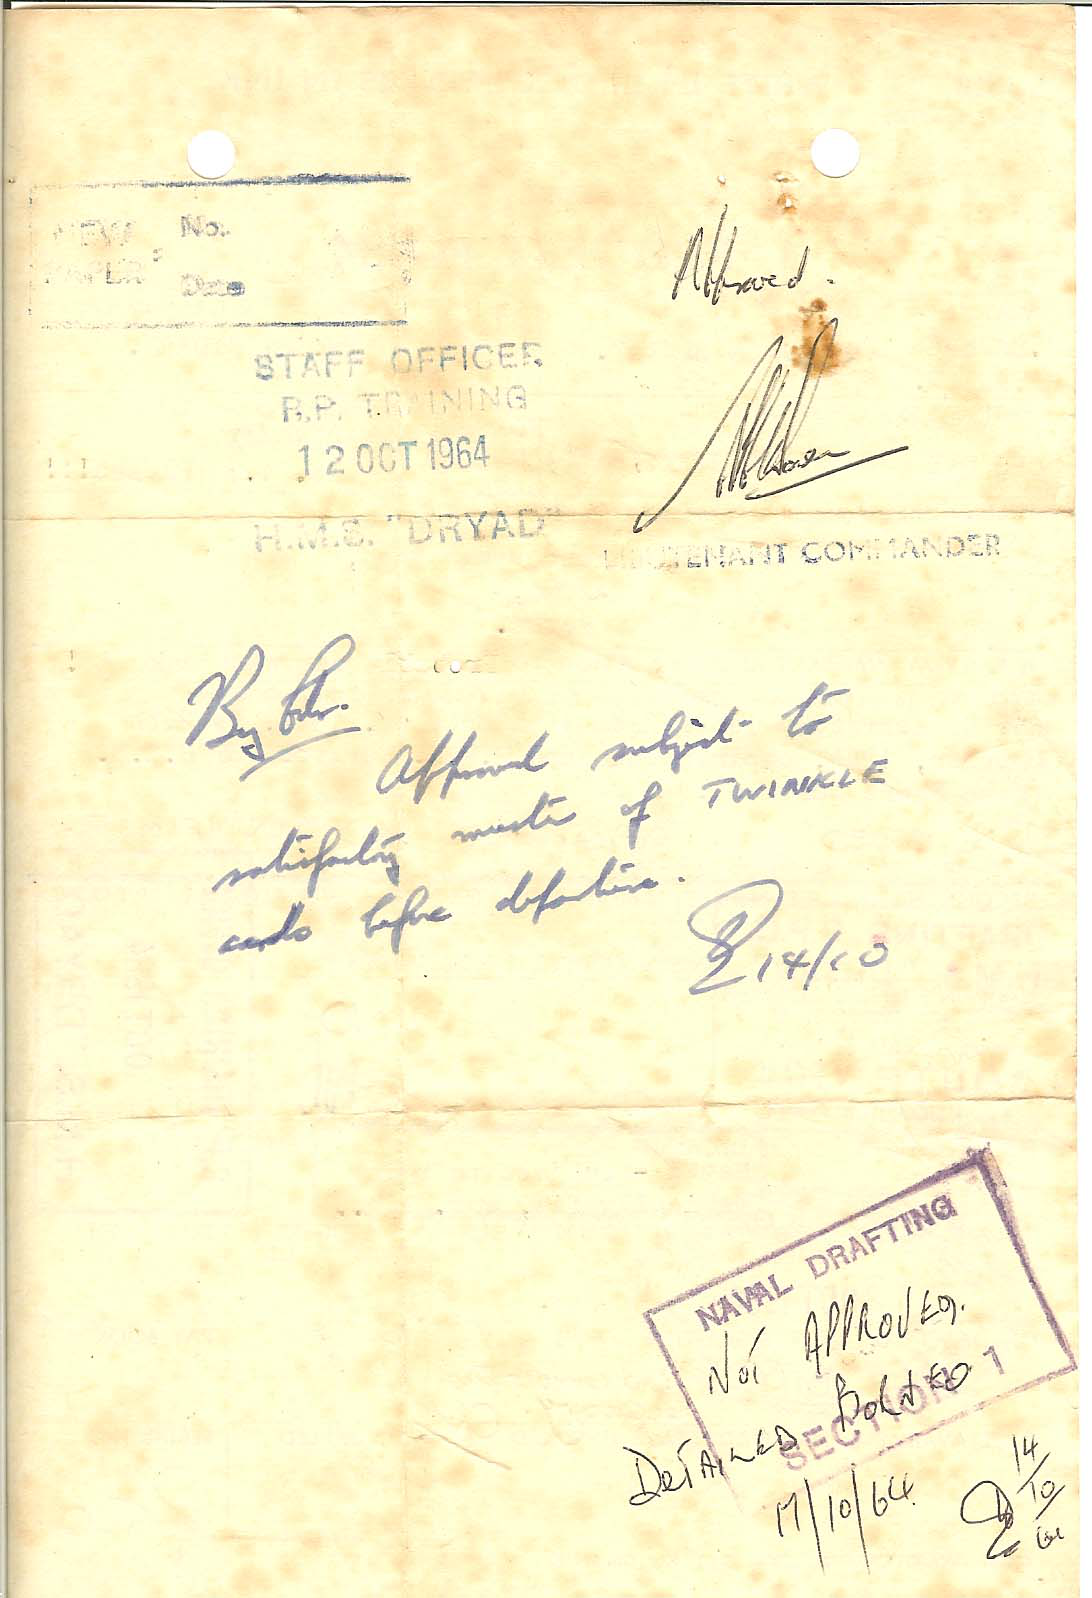 NEW No.
PAPER Date
Approved.
STAFF OFFICER
R.P. TRAINING
12 OCT 1964
H.M.S. "DRYAD"
LIEUTENANT COMMANDER
Approved subject to
satisfactory muster of TWINKLE
cards before departure.
14/10
NAVAL DRAFTING
NOT APPROVED.
SECTION 1
DETAILED BORNEO
17/10/64
14/10/64